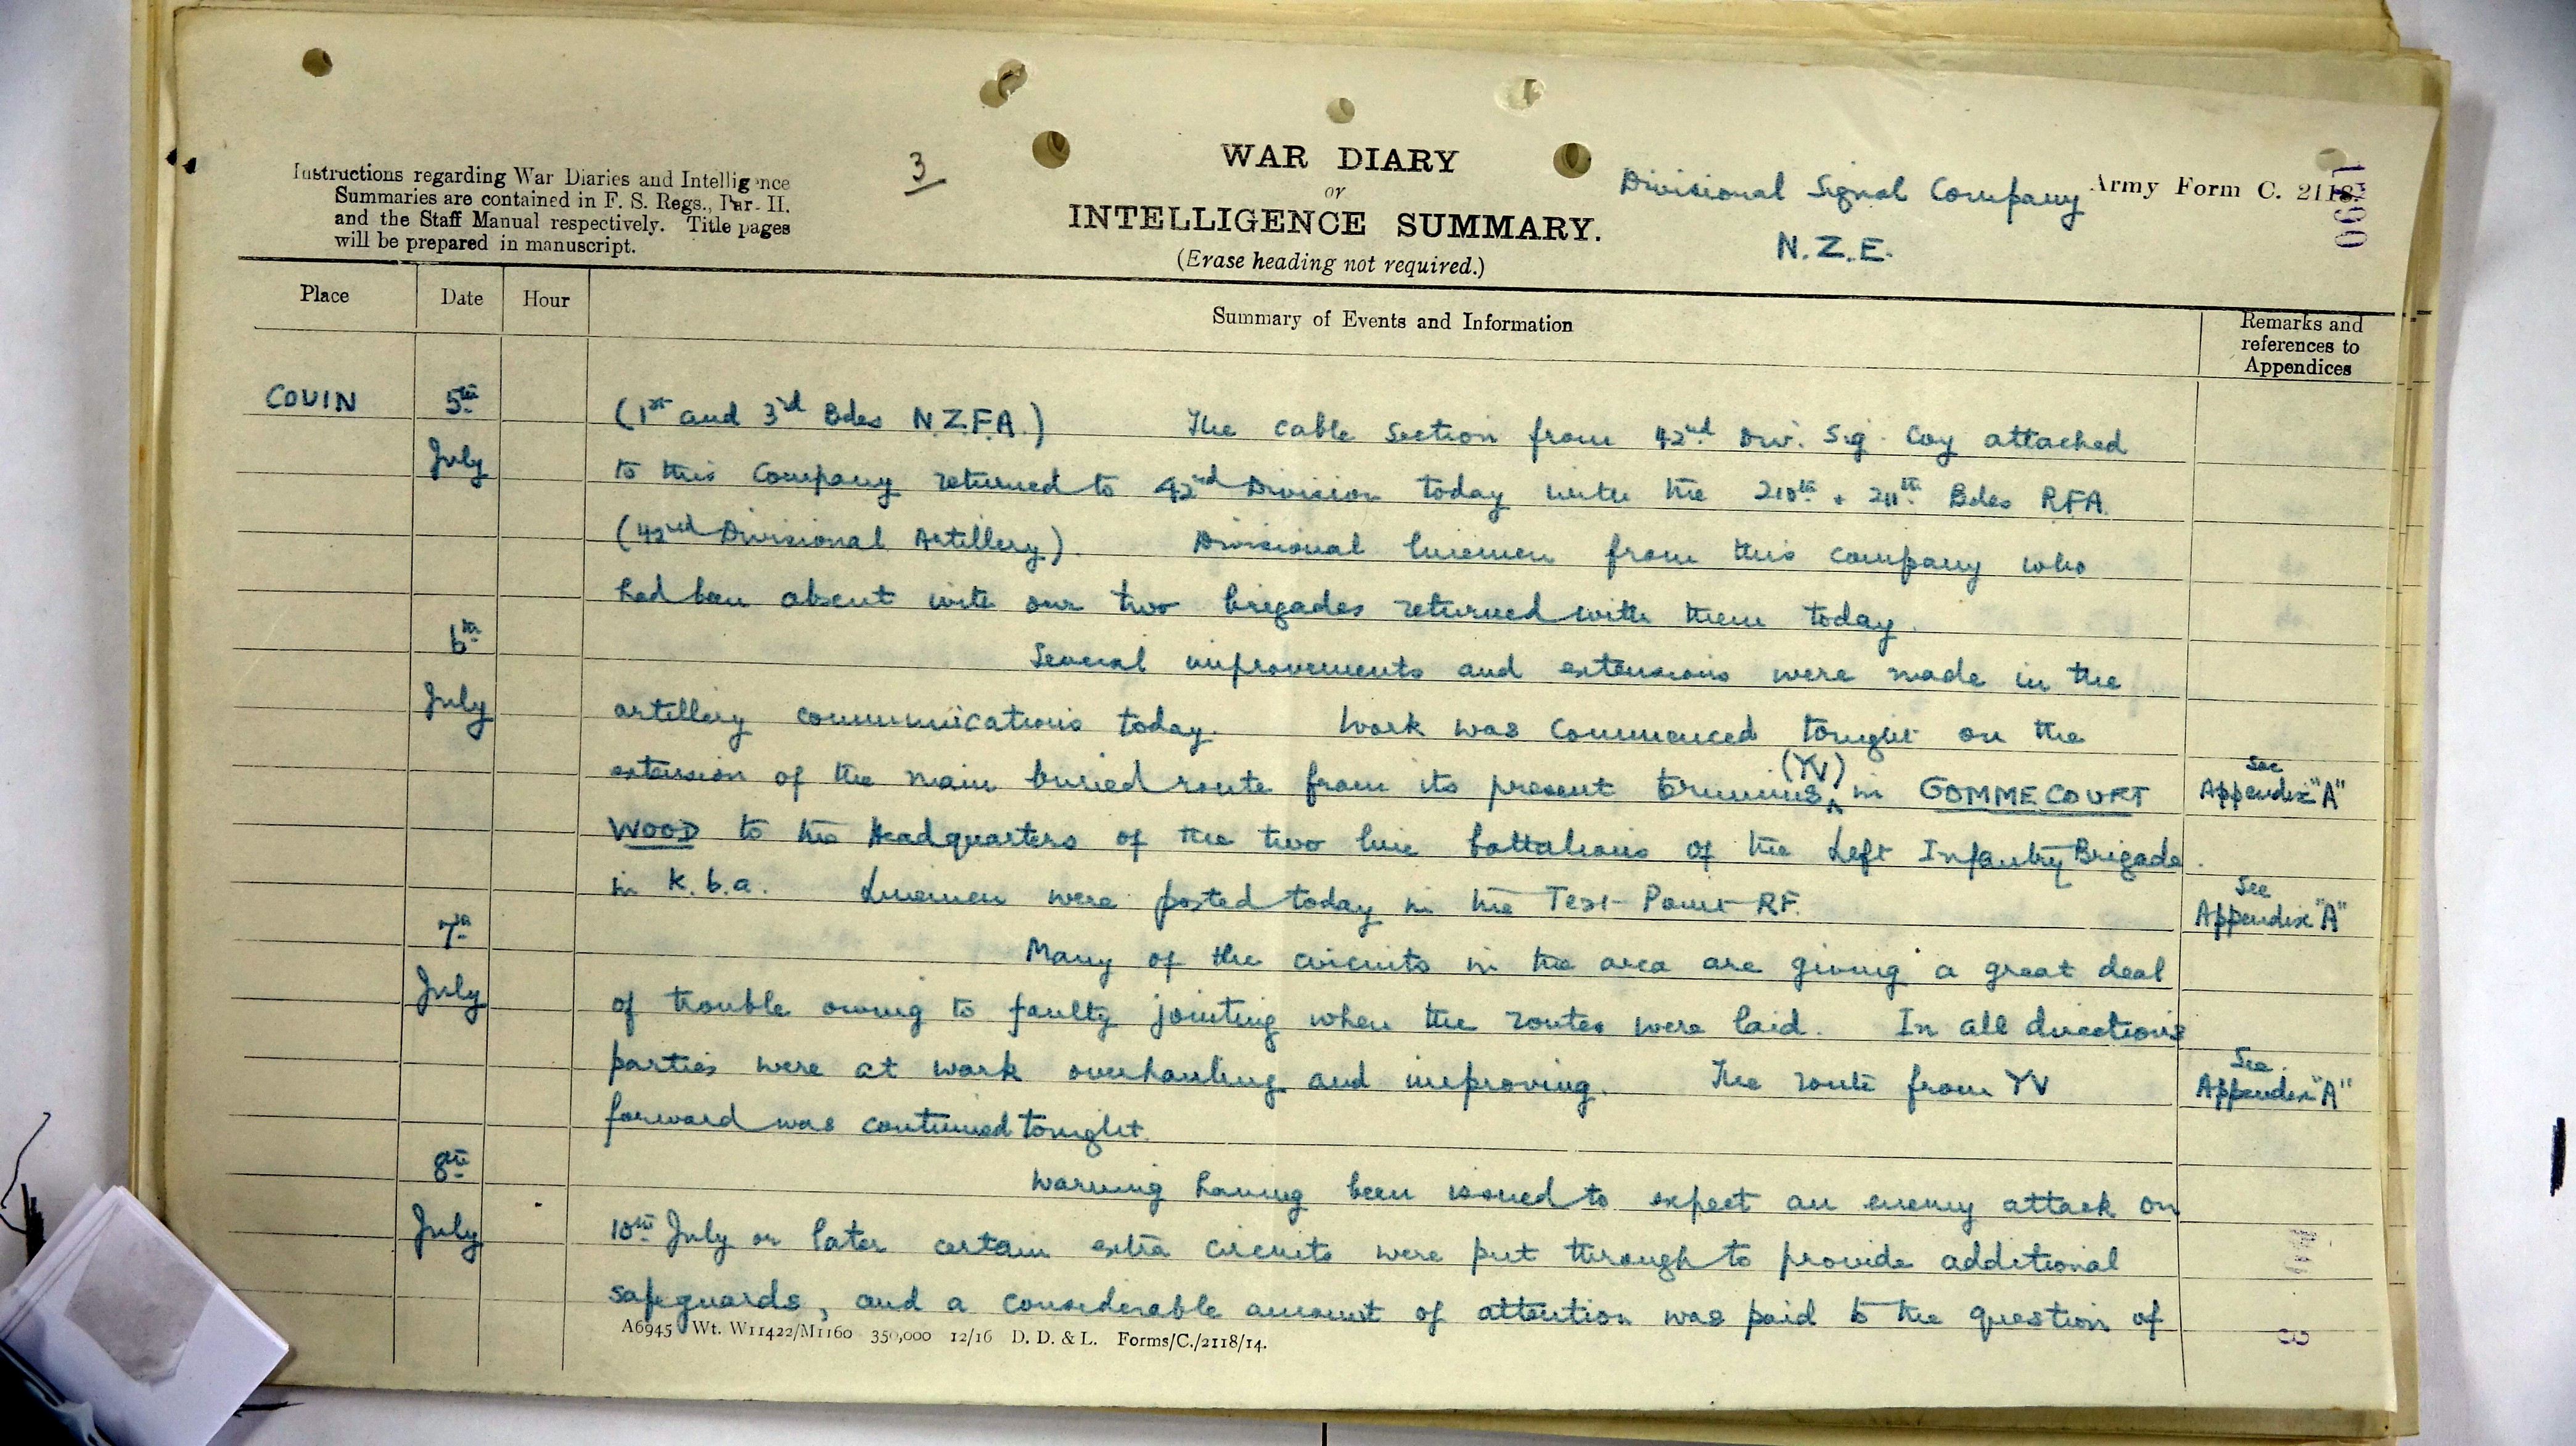 Instructions regarding War Diaries and Intelligence
Summaries are contained in F. S. Regs., Par. II.
and the Staff Manual respectively. Title pages
will be prepared in manuscript.
3
WAR DIARY
or
INTELLIGENCE SUMMARY.
(Erase heading not required.)
Divisional Signal Company
N.Z.E.
Army Form C. 2118.
Place
Date
Hour
Summary of Events and Information
Remarks and
references to
Appendices
COUIN 5th July
(1st and 3rd Bdes N.Z.F.A.) The cable section from 42nd Div. Sig. Coy attached
to this Company returned to 42nd Division today with the 210th + 211th Bdes RFA.
(42nd Divisional Artillery). Divisional linemen from this company who
had been absent with our two brigades returned with them today.
6th July
Several improvements and extensions were made in the
artillery communications today. Work was commenced tonight on the
extension of the main buried route from its present terminus (YV) in GOMMECOURT
See Appendix "A"
WOOD to the Headquarters of the two line battalions of the Left Infantry Brigade
in K.6.a. Linemen were posted today in the Test Point RF.
See Appendix "A"
7th July
Many of the circuits in the area are giving a great deal
of trouble owing to faulty jointing when the routes were laid. In all directions
parties were at work overhauling and improving. The route from YV
See Appendix "A"
forward was continued tonight.
8th July
Warning having been issued to expect an enemy attack on
10th July or later certain extra circuits were put through to provide additional
safeguards, and a considerable amount of attention was paid to the question of
A6945 Wt. W11422/M1160 350,000 12/16 D. D. & L. Forms/C./2118/14.